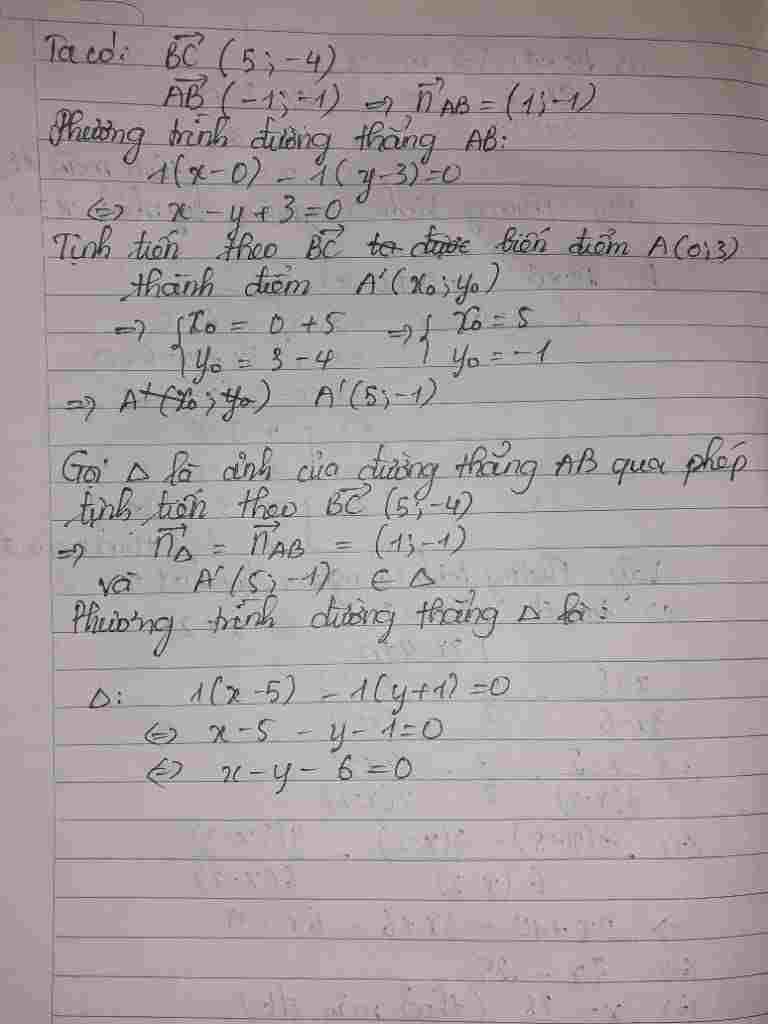 Ta có: BC→ (5;-4)
AB→ (-1;-1) => n→AB = (1;-1)
Phương trình đường thẳng AB:
1(x-0) - 1(y-3)=0
<=> x - y + 3 = 0
Tịnh tiến theo BC→ biến điểm A(0;3)
thành điểm A'(x₀;y₀)
=> { x₀ = 0 + 5 => { x₀ = 5
y₀ = 3 - 4 y₀ = -1
=> A'(x₀; y₀) A'(5;-1)
Gọi Δ là ảnh của đường thẳng AB qua phép
tịnh tiến theo BC→ (5;-4)
=> n→Δ = n→AB = (1;-1)
và A'(5;-1) ∈ Δ
Phương trình đường thẳng Δ là:
Δ: 1(x-5) - 1(y+1) = 0
<=> x-5 - y - 1=0
<=> x-y- 6 =0